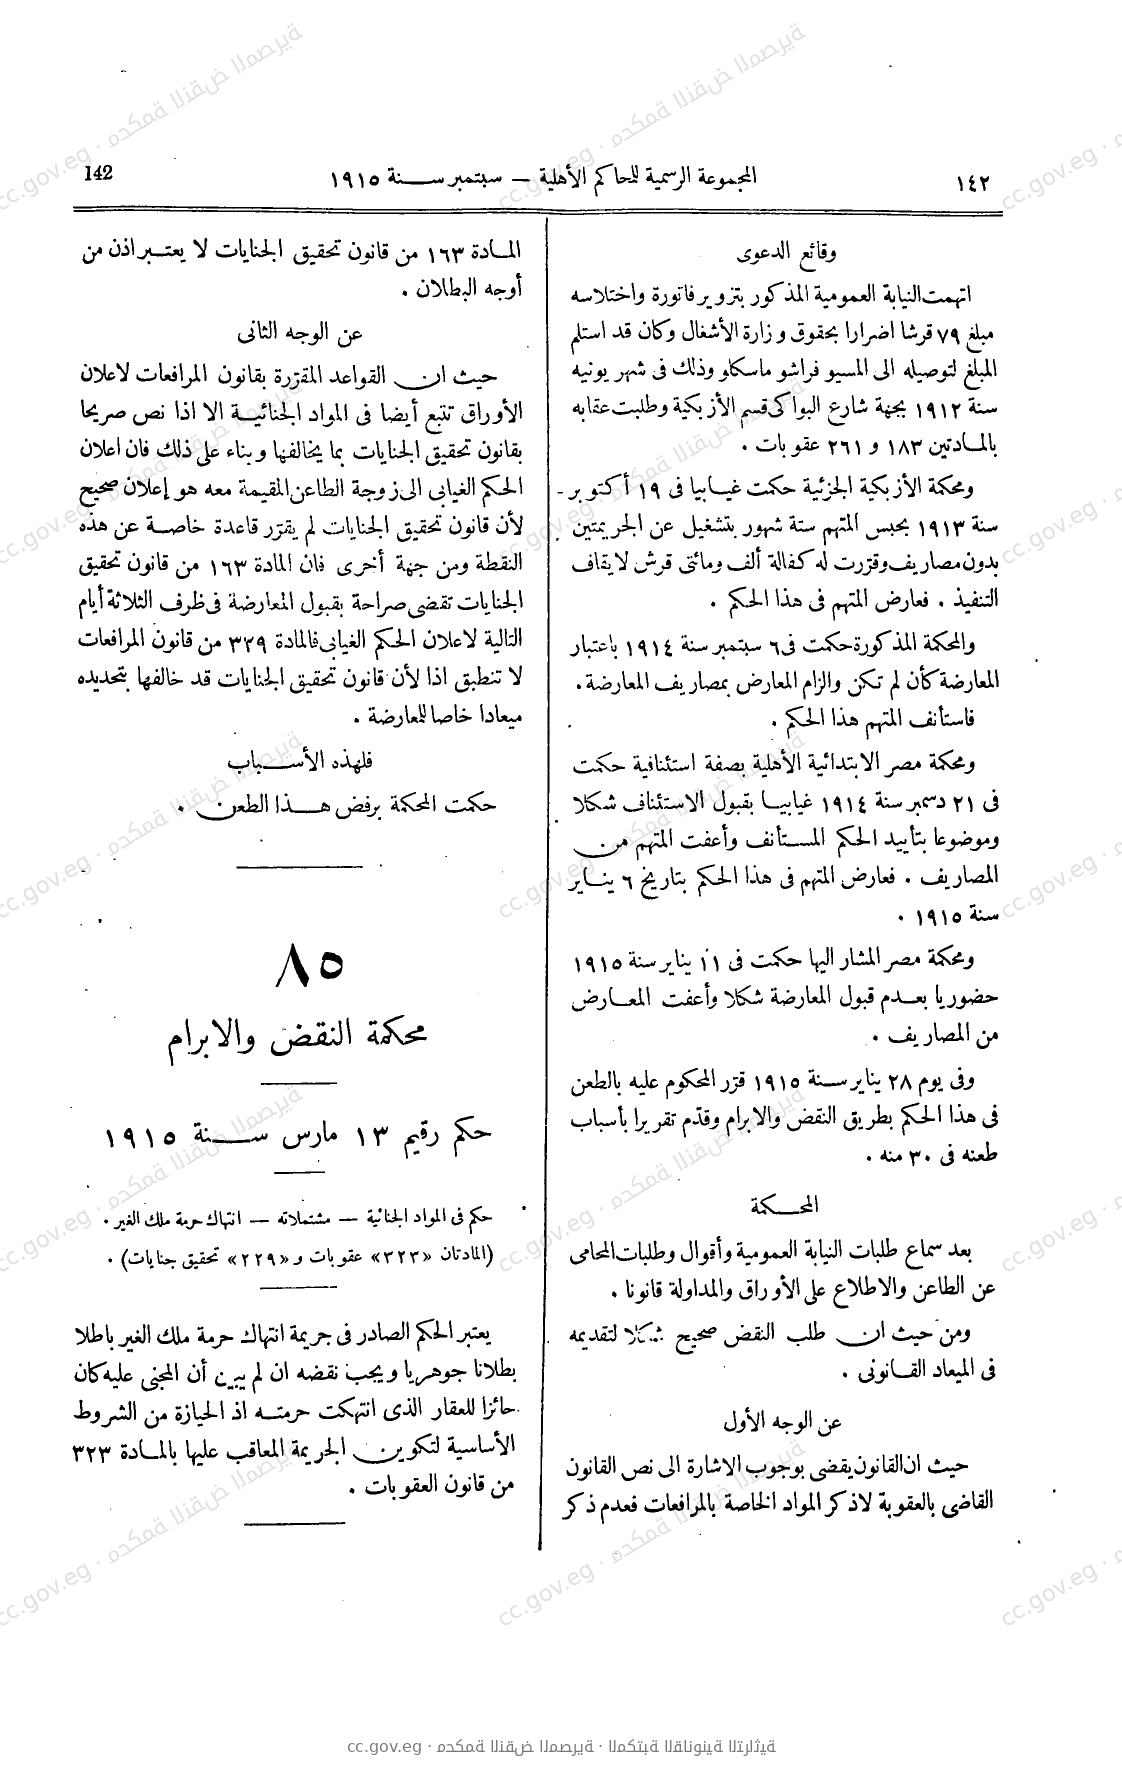 ١٤٢
المجموعة الرسمية للمحاكم الأهلية – سبتمبر سنة ١٩١٥
142
وقائع الدعوى
اتهمت النيابة العمومية المذكور بتزوير فاتورة واختلاسه
مبلغ ٧٩ قرشا اضرارا بحقوق وزارة الأشغال وكان قد استلم
المبلغ لتوصيله الى المسيو فراشو ماسكاو وذلك فى شهر يونيه
سنة ١٩١٢ بجهة شارع البواكى قسم الأزبكية وطلبت عقابه
بالمادتين ١٨٣ و ٢٦١ عقوبات .
ومحكمة الأزبكية الجزئية حكمت غيابيا فى ١٩ أكتوبر
سنة ١٩١٣ بحبس المتهم ستة شهور بتشغيل عن الجريمتين
بدون مصاريف وقررت له كفالة ألف ومائتى قرش لايقاف
التنفيذ . فعارض المتهم فى هذا الحكم .
والمحكمة المذكورة حكمت فى ٦ سبتمبر سنة ١٩١٤ باعتبار
المعارضة كأن لم تكن والزام المعارض بمصاريف المعارضة .
فاستأنف المتهم هذا الحكم .
ومحكمة مصر الابتدائية الأهلية بصفة استئنافية حكمت
فى ٢١ دسمبر سنة ١٩١٤ غيابيا بقبول الاستئناف شكلا
وموضوعا بتأييد الحكم المستأنف وأعفت المتهم من
المصاريف . فعارض المتهم فى هذا الحكم بتاريخ ٦ يناير
سنة ١٩١٥ .
ومحكمة مصر المشار اليها حكمت فى ١١ يناير سنة ١٩١٥
حضوريا بعدم قبول المعارضة شكلا وأعفت المعارض
من المصاريف .
وفى يوم ٢٨ يناير سنة ١٩١٥ قرّر المحكوم عليه بالطعن
فى هذا الحكم بطريق النقض والابرام وقدّم تقريرا بأسباب
طعنه فى ٣٠ منه .
المحكمة
بعد سماع طلبات النيابة العمومية وأقوال وطلبات المحامى
عن الطاعن والاطلاع على الأوراق والمداولة قانونا .
ومن حيث ان طلب النقض صحيح شكلا لتقديمه
فى الميعاد القانونى .
عن الوجه الأول
حيث ان القانون يقضى بوجوب الاشارة الى نص القانون
القاضى بالعقوبة لا ذكر المواد الخاصة بالمرافعات فعدم ذكر
المادة ١٦٣ من قانون تحقيق الجنايات لا يعتبر اذن من
أوجه البطلان .
عن الوجه الثانى
حيث ان القواعد المقرّرة بقانون المرافعات لاعلان
الأوراق تتبع أيضا فى المواد الجنائية الا اذا نص صريحا
بقانون تحقيق الجنايات بما يخالفها وبناء على ذلك فان اعلان
الحكم الغيابى الى زوجة الطاعن المقيمة معه هو إعلان صحيح
لأن قانون تحقيق الجنايات لم يقرّر قاعدة خاصة عن هذه
النقطة ومن جهة أخرى فان المادة ١٦٣ من قانون تحقيق
الجنايات تقضى صراحة بقبول المعارضة فى ظرف الثلاثة أيام
التالية لاعلان الحكم الغيابى فالمادة ٣٢٩ من قانون المرافعات
لا تنطبق اذا لأن قانون تحقيق الجنايات قد خالفها بتحديده
ميعادا خاصا للمعارضة .
فلهذه الأسباب
حكمت المحكمة برفض هذا الطعن .
٨٥
محكمة النقض والابرام
حكم رقيم ١٣ مارس سنة ١٩١٥
حكم فى المواد الجنائية – مشتملاته – انتهاك حرمة ملك الغير .
(المادتان «٣٢٣» عقوبات و «٢٢٩» تحقيق جنايات) .
يعتبر الحكم الصادر فى جريمة انتهاك حرمة ملك الغير باطلا
بطلانا جوهريا ويجب نقضه ان لم يبين أن المجنى عليه كان
حائزا للعقار الذى انتهكت حرمته اذ الحيازة من الشروط
الأساسية لتكوين الجريمة المعاقب عليها بالمادة ٣٢٣
من قانون العقوبات .
cc.gov.eg · محكمة النقض المصرية · المكتبة القانونية التراثية